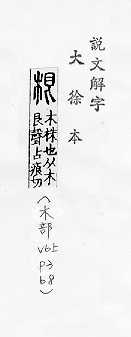 說文解字
大徐本
根
木株也从木
艮聲古痕切
（木部
v6上
p3
b8）